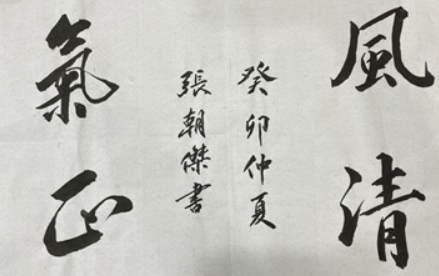 風清
癸卯仲夏
張朝傑書
氣正